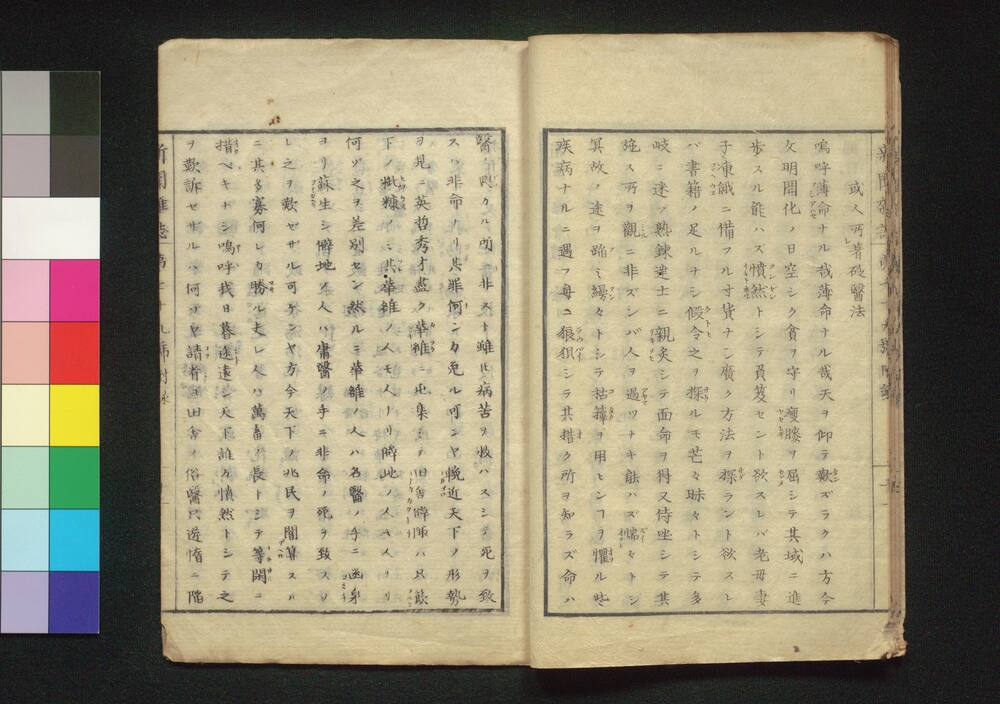 或人所著砭醫法
嗚呼薄命ナル哉薄命ナル哉天ヲ仰テ歎ズラクハ方今
文明開化ノ日空シク貧ヲ守リ瘦勝ヲ屈シテ其域ニ進
歩スル能ハス憤然トシテ負笈セント欲スレバ老母妻
子凍餓ニ備フル寸貲ナシ廣ク方法ヲ探ラント欲スレ
バ書籍ノ足ルナシ假令之ヲ探ルモ芒々昧々トシテ多
岐ニ迷ヒ熟錬建士ニ親炙シテ面命ヲ得又侍坐シテ其
施ス所ヲ觀ニ非ズンバ人ヲ過ツナキ能ハズ懦々トシ
冥故ノ途ヲ踊ミ縵々トシテ括捧ヲ用ヒンヿヲ懼ル些
疾病ナルニ遇フ毎ニ狼狽シテ其措ク所ヲ知ラズ命ハ
醫ノ司カル所ニ非スト雖ㇳ゙モ病苦ヲ救ハスシテ死ヲ致
スハ非命ナリ其罪何ンカ免ル可ンヤ輓近天下ノ形勢
ヲ見ニ英哲秀才盡ク輦轂ニ屯集シテ田舎僻陬ハ只飲
下ノ粃糠ノミ其輦轂ノ人モ人ナリ僻地ノ人モ人ナリ
何ソ之ヲ差別セン然ルニ輦轂ノ人ハ名醫ノ手ニ
ヨリ蘇生シ僻地ノ人ハ庸醫ノ手ニ非命ノ死ヲ致スソ
レ之ヲ歎セザル可ケンヤ方今天下ノ兆民ヲ闇算スル
ニ其多寡何レカ勝ル夫レ人ハ萬畜ノ長トシテ等閑ニ
措ベキナシ嗚呼我日暮途遠シ天下誰カ憤然トシテ之
ヲ歎訴セザルハ何ソヤ請看ヨ田舎ノ俗醫只遊惰ニ陥